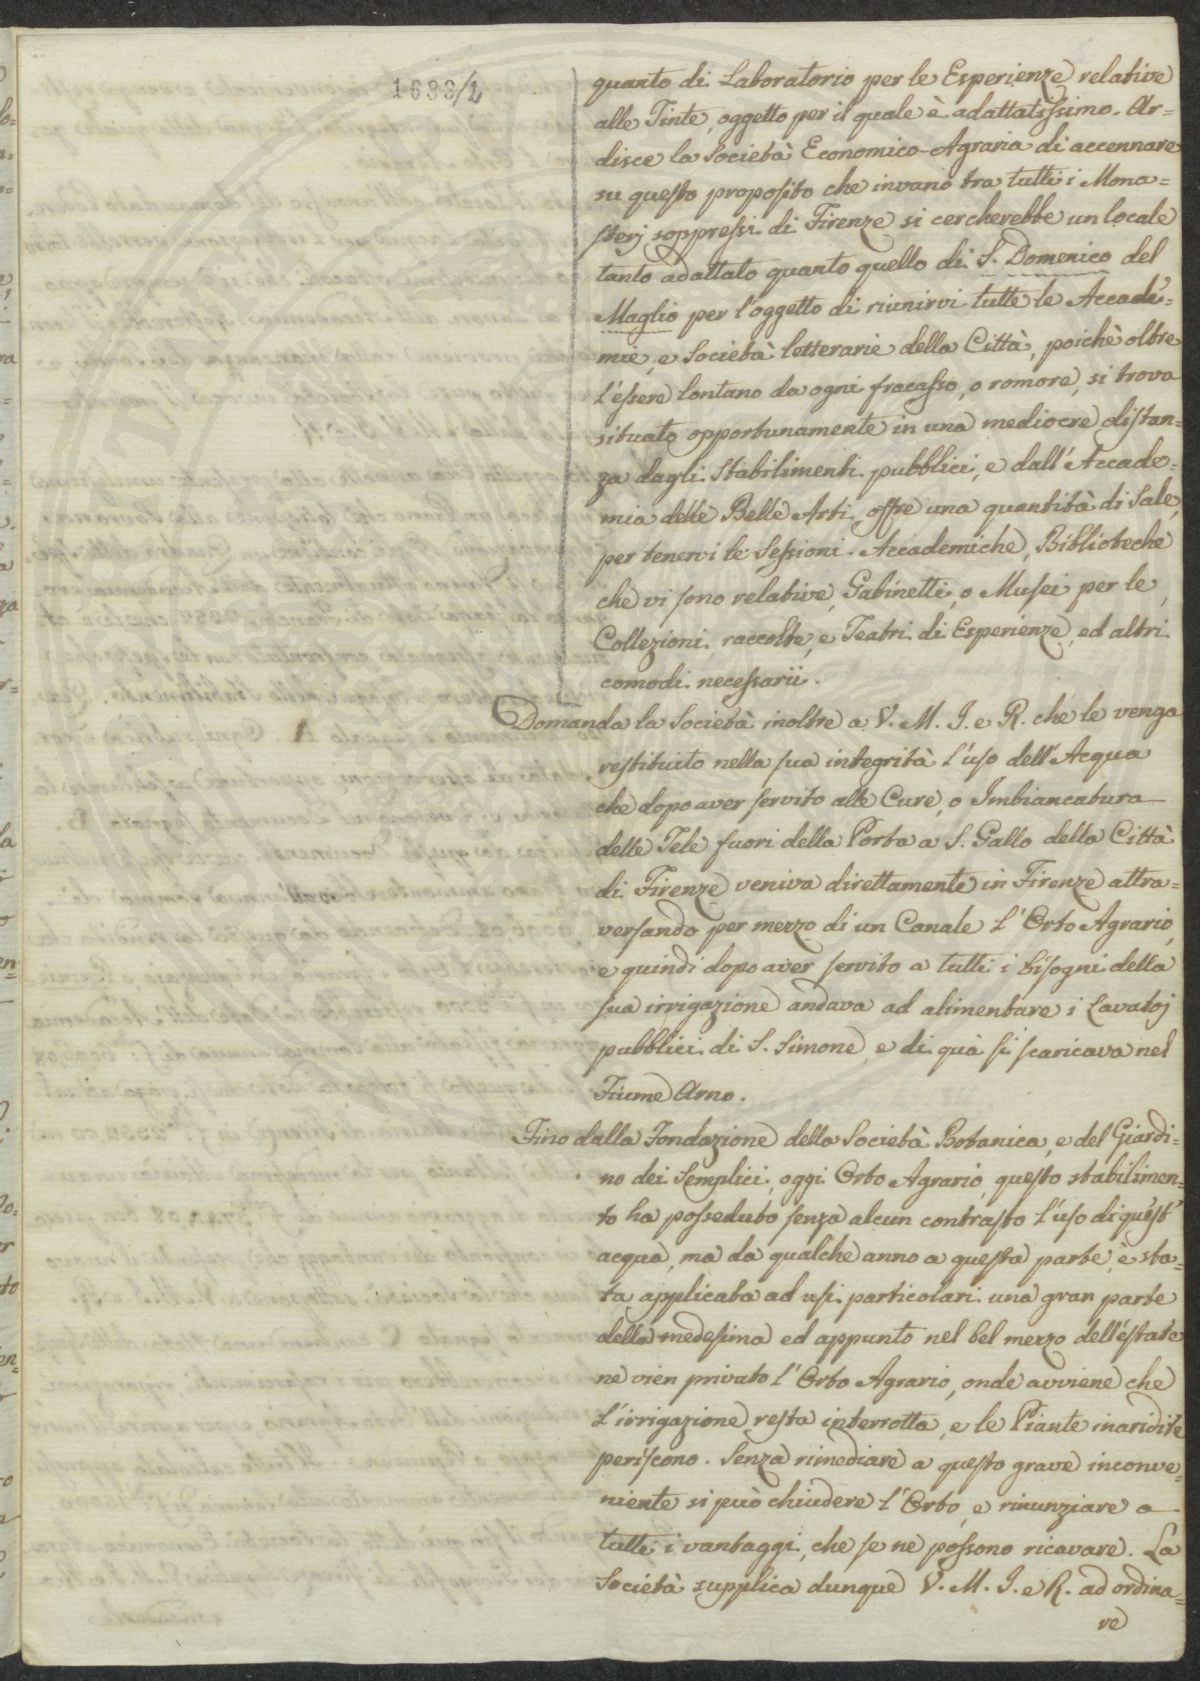 1683/1
quanto di Laboratorio per le Esperienze relative
alle Tinte, oggetto per il quale è adattatissimo. Ar=
disce la Società Economico-Agraria di accennare
su questo proposito che invano tra tutti i Mona=
sterj soppressi di Firenze si cercherebbe un locale
tanto adattato quanto quello di S. Domenico del
Maglio per l'oggetto di riunirvi tutte le Accade=
mie, e Società letterarie della Città, poichè oltre
l'essere lontano da ogni fracasso, o romore, si trova
situato opportunamente in una mediocre distan=
za dagli Stabilimenti pubblici, e dall'Accade=
mia delle Belle Arti, offre una quantità di Sale,
per tenervi le Sessioni Accademiche, Biblioteche
che vi sono relative, Gabinetti, o Musei per le
Collezioni, raccolte, e Teatri di Esperienze, ed altri
comodi necessarii.
Domanda la Società inoltre a V. M. I. e R. che le venga
restituito nella sua integrità l'uso dell'Acqua
che dopo aver servito alle Cure, o Imbiancatura
delle Tele fuori della Porta a S. Gallo della Città
di Firenze veniva direttamente in Firenze attra=
versando per mezzo di un Canale l'Orto Agrario,
e quindi dopo aver servito a tutti i bisogni della
sua irrigazione andava ad alimentare i Lavatoj
pubblici di S. Simone, e di quà si scaricava nel
Fiume Arno.
Fino dalla Fondazione della Società Botanica, e del Giardi=
no dei Semplici, oggi Orto Agrario, questo stabilimen=
to ha posseduto senza alcun contrasto l'uso di quest'
acqua, ma da qualche anno a questa parte, è sta=
ta applicata ad usi particolari una gran parte
della medesima ed appunto nel bel mezzo dell'estate
ne vien privato l'Orto Agrario, onde avviene che
l'irrigazione resta interrotta, e le Piante inaridite
periscono. Senza rimediare a questo grave inconve=
niente si può chiudere l'Orto, e rinunziare a
tutti i vantaggi, che se ne possono ricavare. La
Società supplica dunque V. M. I. e R. ad ordina=
re